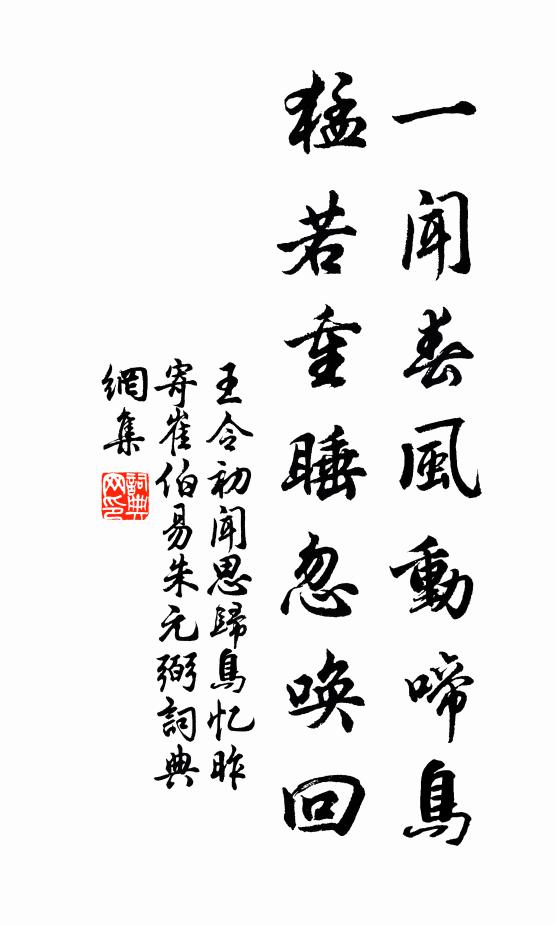 一聞春風動啼鳥
猛若重睡忽喚回
王令初聞思歸鳥忆昨
寄崔伯易朱元弼詞典
網集
詞典网印